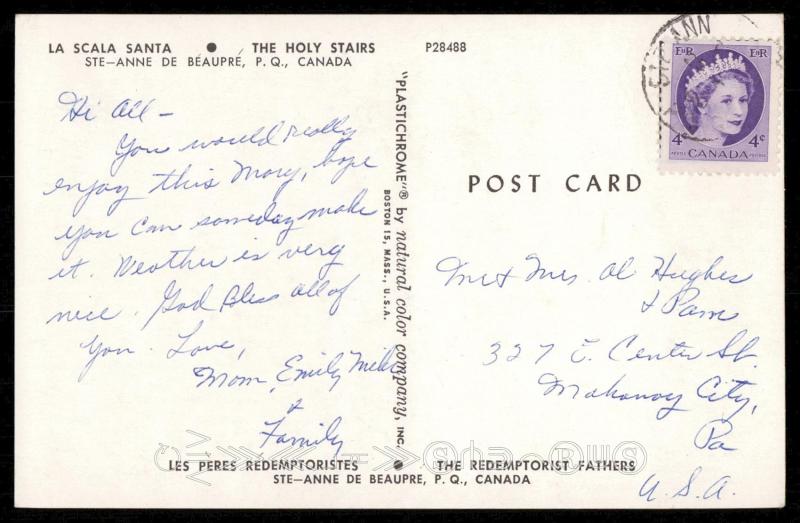 LA SCALA SANTA ● THE HOLY STAIRS
STE—ANNE DE BEAUPRE, P. Q., CANADA
P28488
Hi All –
You would really
enjoy this Mary, hope
you can someday make
it. Weather is very
nice. God Bless all of
you. Love,
Mom, Emily Mike
&
Family
LES PERES REDEMPTORISTES ● THE REDEMPTORIST FATHERS
STE—ANNE DE BEAUPRE, P. Q., CANADA
"PLASTICHROME"® by natural color company, INC.
BOSTON 15, MASS., U.S.A.
STE ANN
EIIR EIIR
4¢ 4¢
POSTES CANADA POSTAGE
POST CARD
Mr & Mrs Al Hughes
& Pam
327 E. Center St.
Mahanoy City,
Pa
U.S.A.